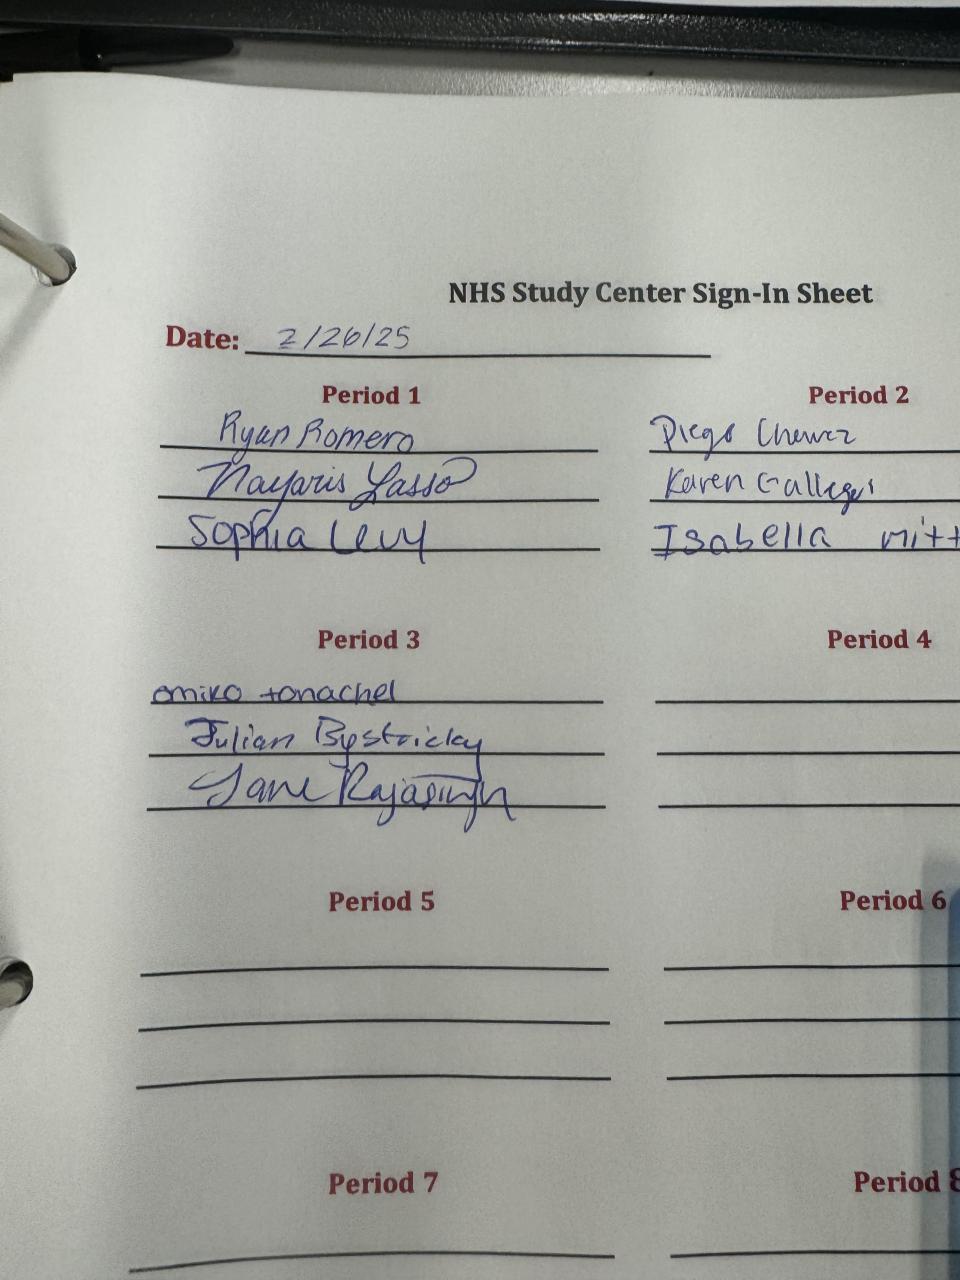 NHS Study Center Sign-In Sheet
Date: 2/26/25
Period 1
Ryan Romero
Nayaris Lasso
Sophia Levy
Period 2
Diego
Karen
Isabella
Period 3
omiko tonachel
Julian Bystricky
Rajasingh
Period 4
Period 5
Period 6
Period 7
Period 8